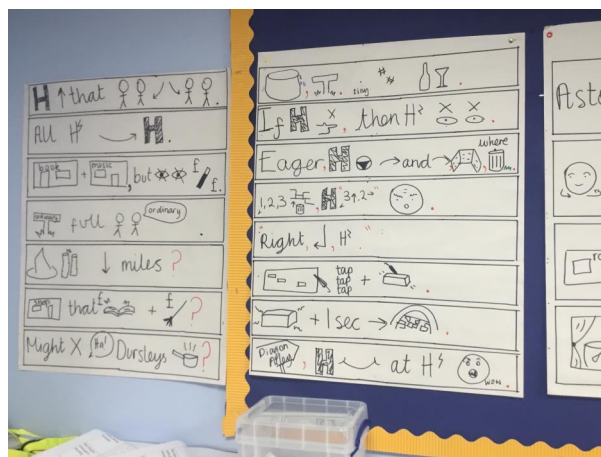 H that
All H's H.
book + music, but f f.
ordinary full ordinary
miles?
shop that f + f?
Might X Ha! Dursleys?
tiny
If H X, then H's X X
Eager, H → and → where
1, 2, 3 H "3↑. 2→"
"Right, H's."
tap
tap
tap +
+ 1 sec →
Diagon Alley, H at H's wow
Asto